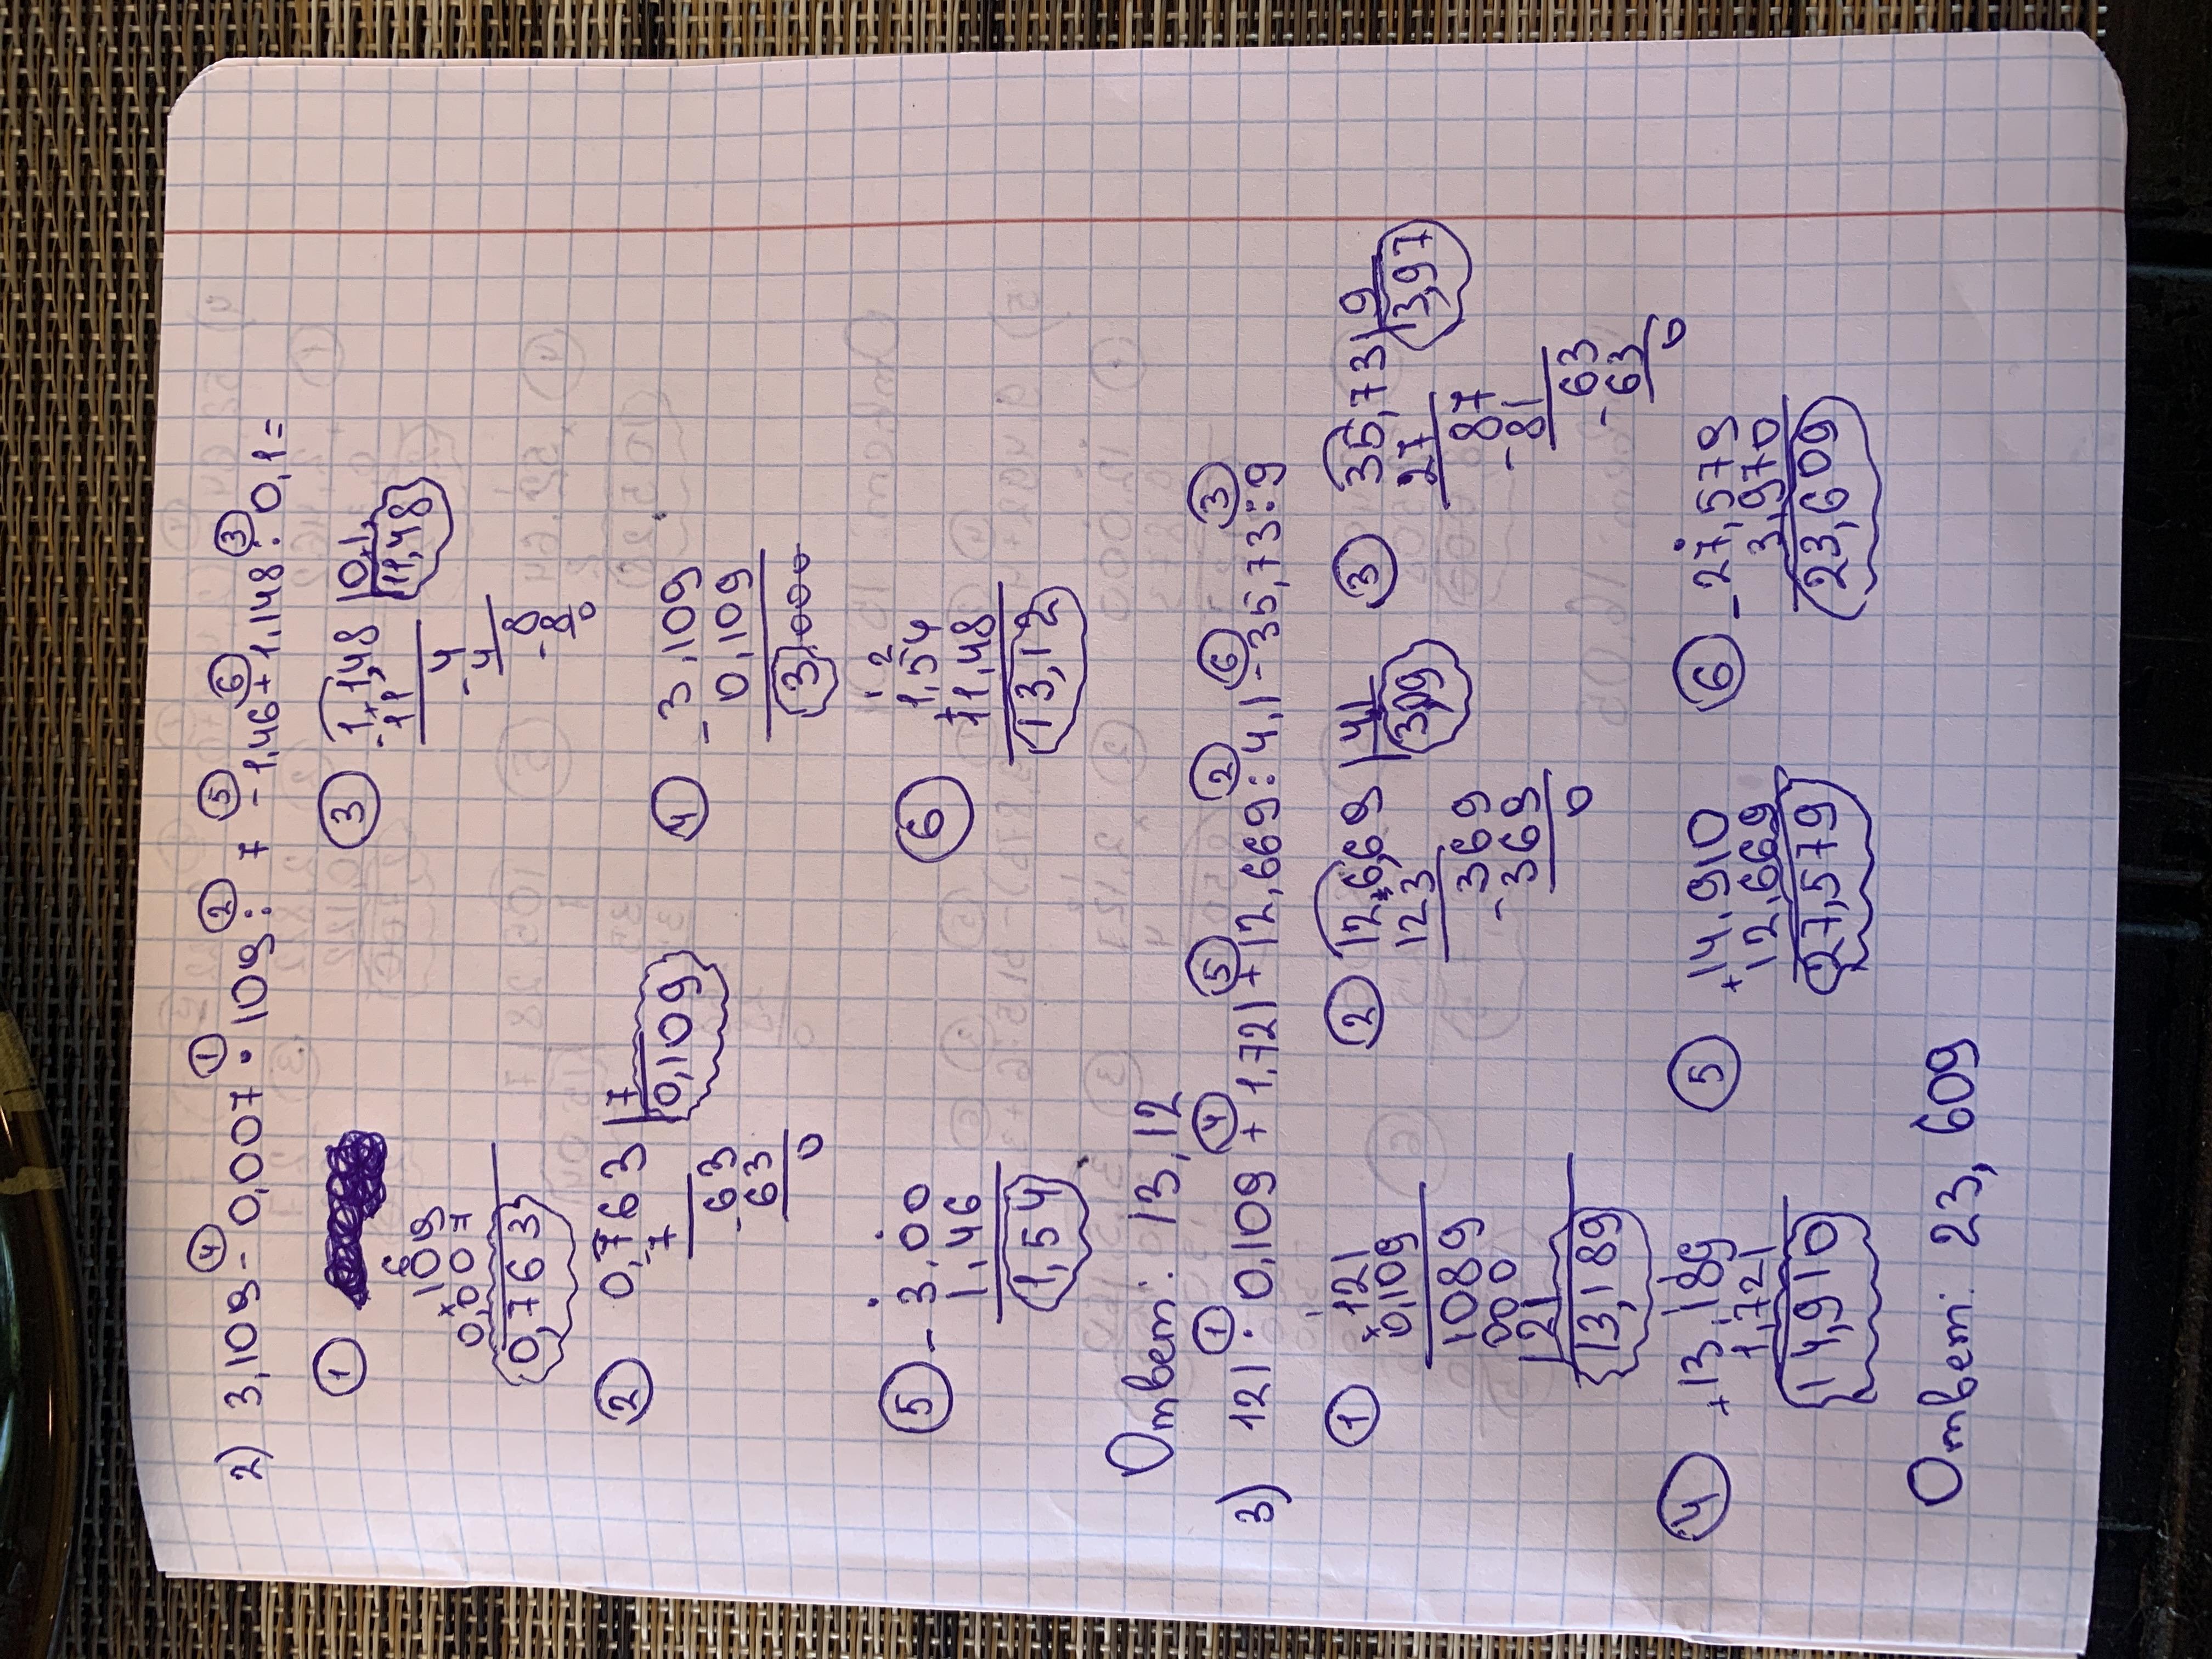 2) 3,109 ④ - 0,007 ① · 109 ② : 7 ⑤ - 1,46 ⑥ + 1,148 ③ : 0,1 =
①
6
109
×
0,007
0,763
③ 1,1,48 | 0,1
- 11 | 11,48
4
- 4
8
- 8
0
② 0,763 | 7
- 7 | 0,109
63
- 63
0
④ - 3,109
0,109
3,000
⑤ - 3,00
1,46
1,54
⑥
1,54
+ 11,48
13,12
Ответ: 13,12
3) 121 ① · 0,109 ④ + 1,721 ⑤ + 12,669 ② : 4,1 ⑥ - 35,73 ③ : 9
① 121
×
0,109
1089
000
121
13,189
② 12,6,69 | 41
123 | 3,09
369
- 369
0
③ 35,73 | 9
27 | 3,97
87
- 81
63
- 63
0
④ + 13,189
1,721
14,910
⑤ + 14,910
12,669
27,579
⑥ - 27,579
3,970
23,609
Ответ: 23,609